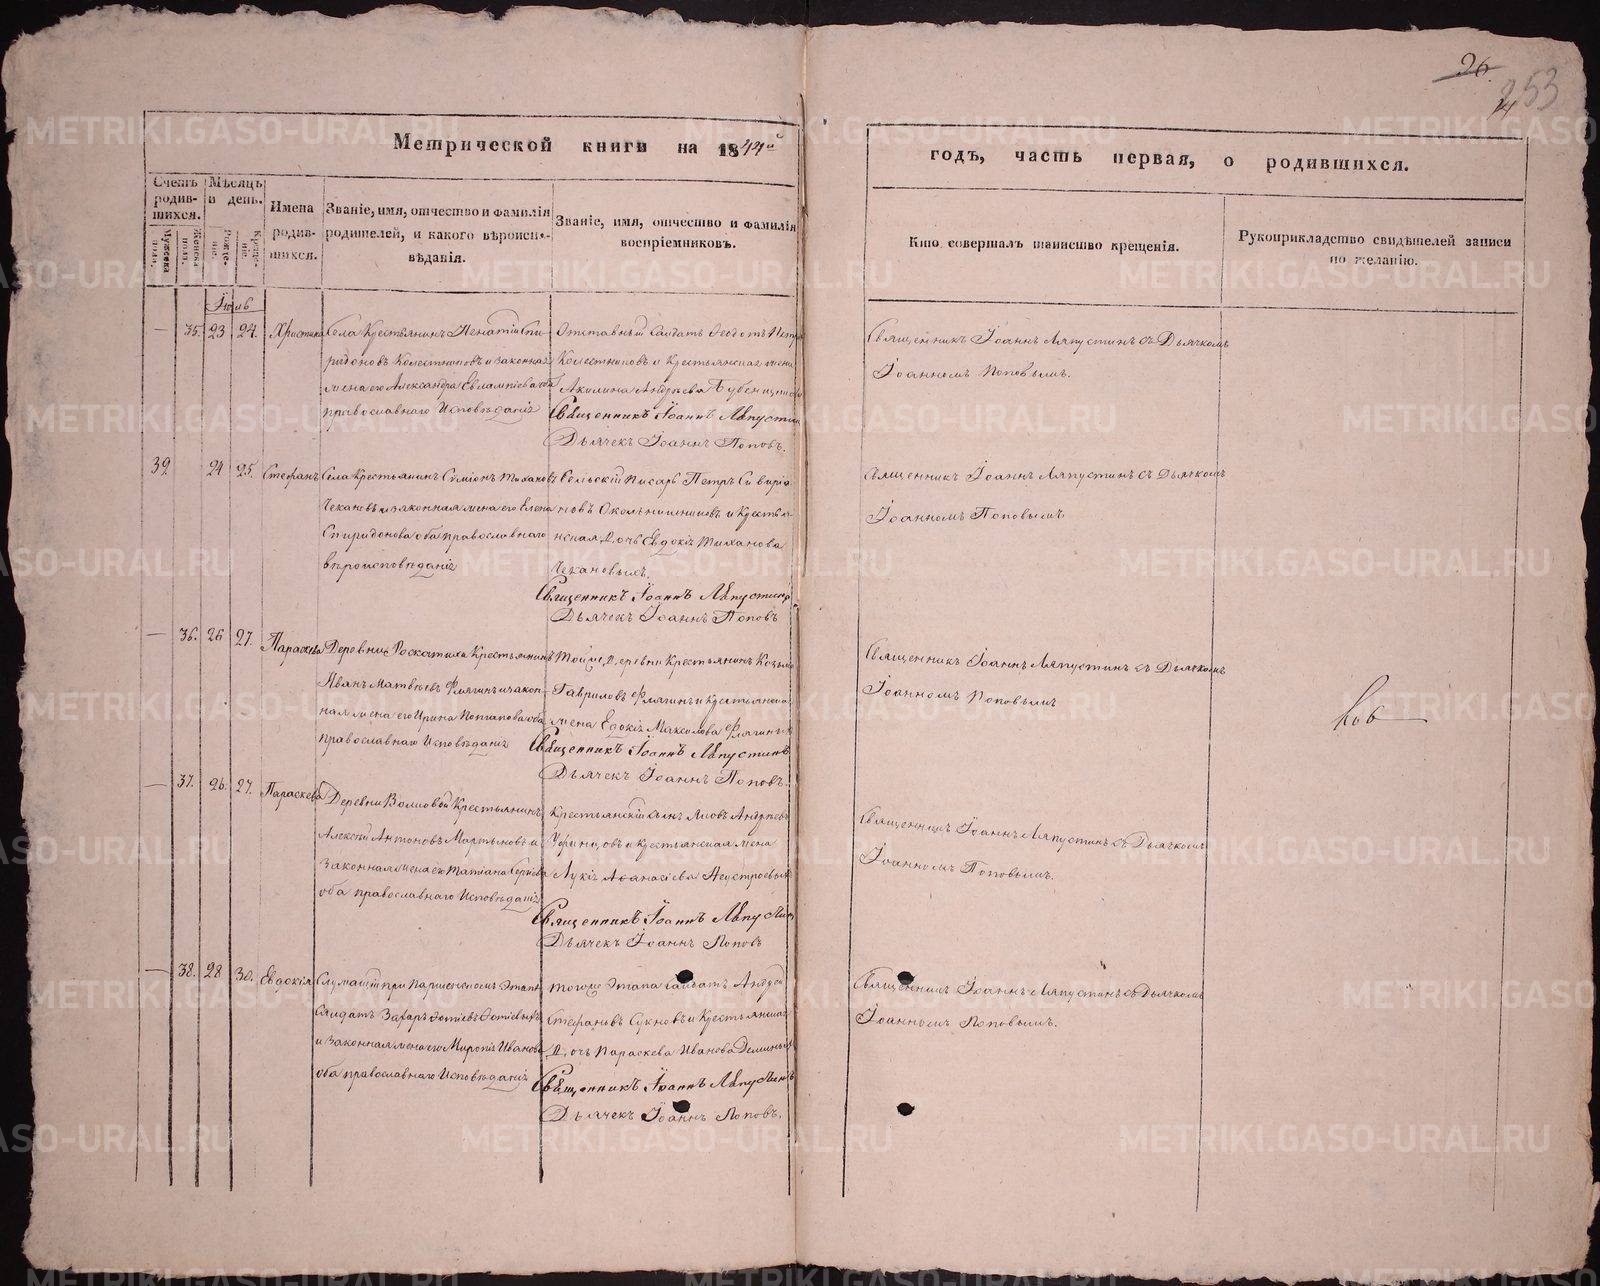 26.
253
Метрической книги на 1844й
годъ, часть первая, о родившихся.
Счетъ родив-шихся.
Мѣсяцъ и день.
Мужеска пола.
Женска пола.
Рожде-ніе.
Креще-ніе.
Имена родив-шихся.
Званіе, имя, отчество и фамилія
родителей, и какого вѣроиспо-
вѣданія.
Званіе, имя, отчество и фамилія
воспріемниковъ.
Кто совершалъ таинство крещенія.
Рукоприкладство свидѣтелей записи
по желанію.
Іюль
35. 23 24. Христина
Села Крестьянинъ Игнатій Спи-
ридоновъ Колесниковъ и законная
жена его Александра Евлампіева оба
православнаго Исповѣданія
Отставный Салдатъ Ѳеодотъ Петр
Колесниковъ и Крестьянская жена
Акилина Андреева
Священникъ Іоаннъ Ляпустин
Дьячекъ Іоаннъ Поповъ.
Священникъ Іоаннъ Ляпустинъ съ Дьячкомъ
Іоанномъ Поповымъ.
39. 24 25. Стефанъ
Села Крестьянинъ Симіонъ Тихановъ
Чекановъ и законная жена его Елена
Спиридонова оба православнаго
вѣроисповѣданія
Сельскій Писарь Петръ Сивиріа-
новъ Окольнишниковъ и Крестья-
нская Дочь Евдокія Тиханова
Чекановыхъ.
Священникъ Іоаннъ Ляпустинъ
Дьячекъ Іоаннъ Поповъ
Священникъ Іоаннъ Ляпустинъ съ Дьячкомъ
Іоанномъ Поповымъ.
36. 26 27. Параскева
Деревни Роскатиха Крестьянинъ
Иванъ Матвѣевъ Флягинъ и закон-
ная жена его Ирина Потапова оба
православнаго Исповѣданія
Тойже Деревни Крестьянинъ Козьма
Гавриловъ Флягинъ и Крестьянска
жена Евдокія Максимова Флягин
Священникъ Іоаннъ Ляпустинъ
Дьячекъ Іоаннъ Поповъ.
Священникъ Іоаннъ Ляпустинъ съ Дьячкомъ
Іоанномъ Поповымъ
37. 26. 27. Параскева
Деревни Волковой Крестьянинъ
Алексій Антоновъ Мартыновъ и
Законная жена его Татіана Сергіева
оба православнаго Исповѣданія
Крестьянскій сынъ Яковъ Андреевъ
и крестьянская жена
Лукія Аѳанасіева Неустроевыхъ
Священникъ Іоаннъ Ляпустин
Дьячекъ Іоаннъ Поповъ
Священникъ Іоаннъ Ляпустинъ съ Дьячкомъ
Іоанномъ Поповымъ.
38. 28 30. Евдокія
Служащій при Этапѣ
Салдатъ Захаръ Фотіевъ Фотіевыхъ
и Законная жена его Миропія Иванова
оба православнаго Исповѣданія
Тогоже Этапа Салдатъ Андрей
Стефановъ Сукновъ и Крестьянская
Дочь Параскева Иванова Деминых
Священникъ Іоаннъ Ляпустинъ
Дьячекъ Іоаннъ Поповъ.
Священникъ Іоаннъ Ляпустинъ съ Дьячкомъ
Іоанномъ Поповымъ.
METRIKI.GASO-URAL.RU